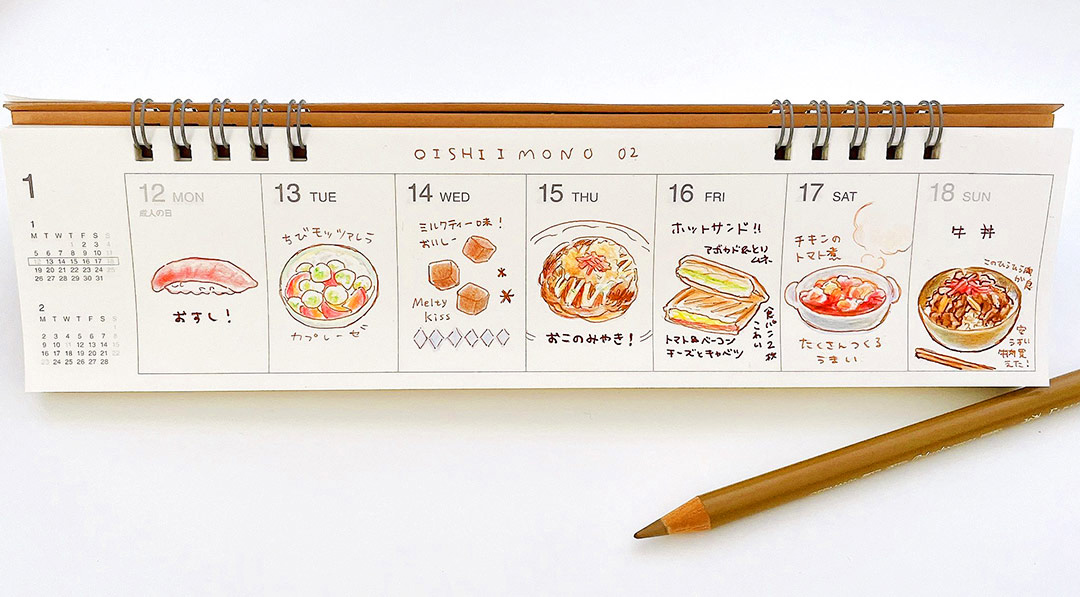 OISHIIMONO 02
1
1
M T W T F S S
1 2 3 4
5 6 7 8 9 10 11
12 13 14 15 16 17 18
19 20 21 22 23 24 25
26 27 28 29 30 31
2
M T W T F S S
1
2 3 4 5 6 7 8
9 10 11 12 13 14 15
16 17 18 19 20 21 22
23 24 25 26 27 28
12 MON
成人の日
おすし!
13 TUE
ちびモッツァレラ
カプレーゼ
14 WED
ミルクティー味!
おいしー
Melty
Kiss
15 THU
おこのみやき!
16 FRI
ホットサンド!!
アボカド&とり
ムネ
食パン2枚
こわい
トマト&ベーコン
チーズとキャベツ
17 SAT
チキンの
トマト煮
たくさんつくる
うまい
18 SUN
牛丼
が良
安
うすい
牛肉買
えた!